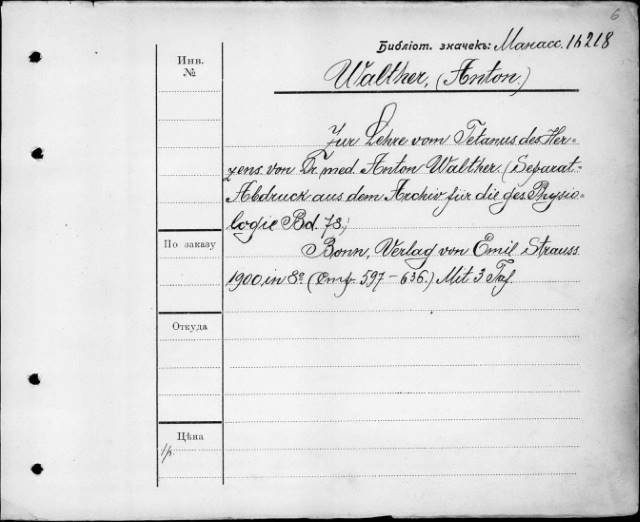 6
Библіот. значекъ: Манасс. 1h218
Инв.
№
Walther, (Anton.)
Zur Lehre vom Tetanus des Her-
zens. von Dr. med. Anton Walther. (Separat-
Abdruck aus dem Archiv für die ges. Physio-
logie Bd. 78)
По заказу
Bonn, Verlag von Emil Strauss.
1900 in 8º (Стр. 597 - 636.) Mit 3 Taf.
Откуда
Цѣна
1р.